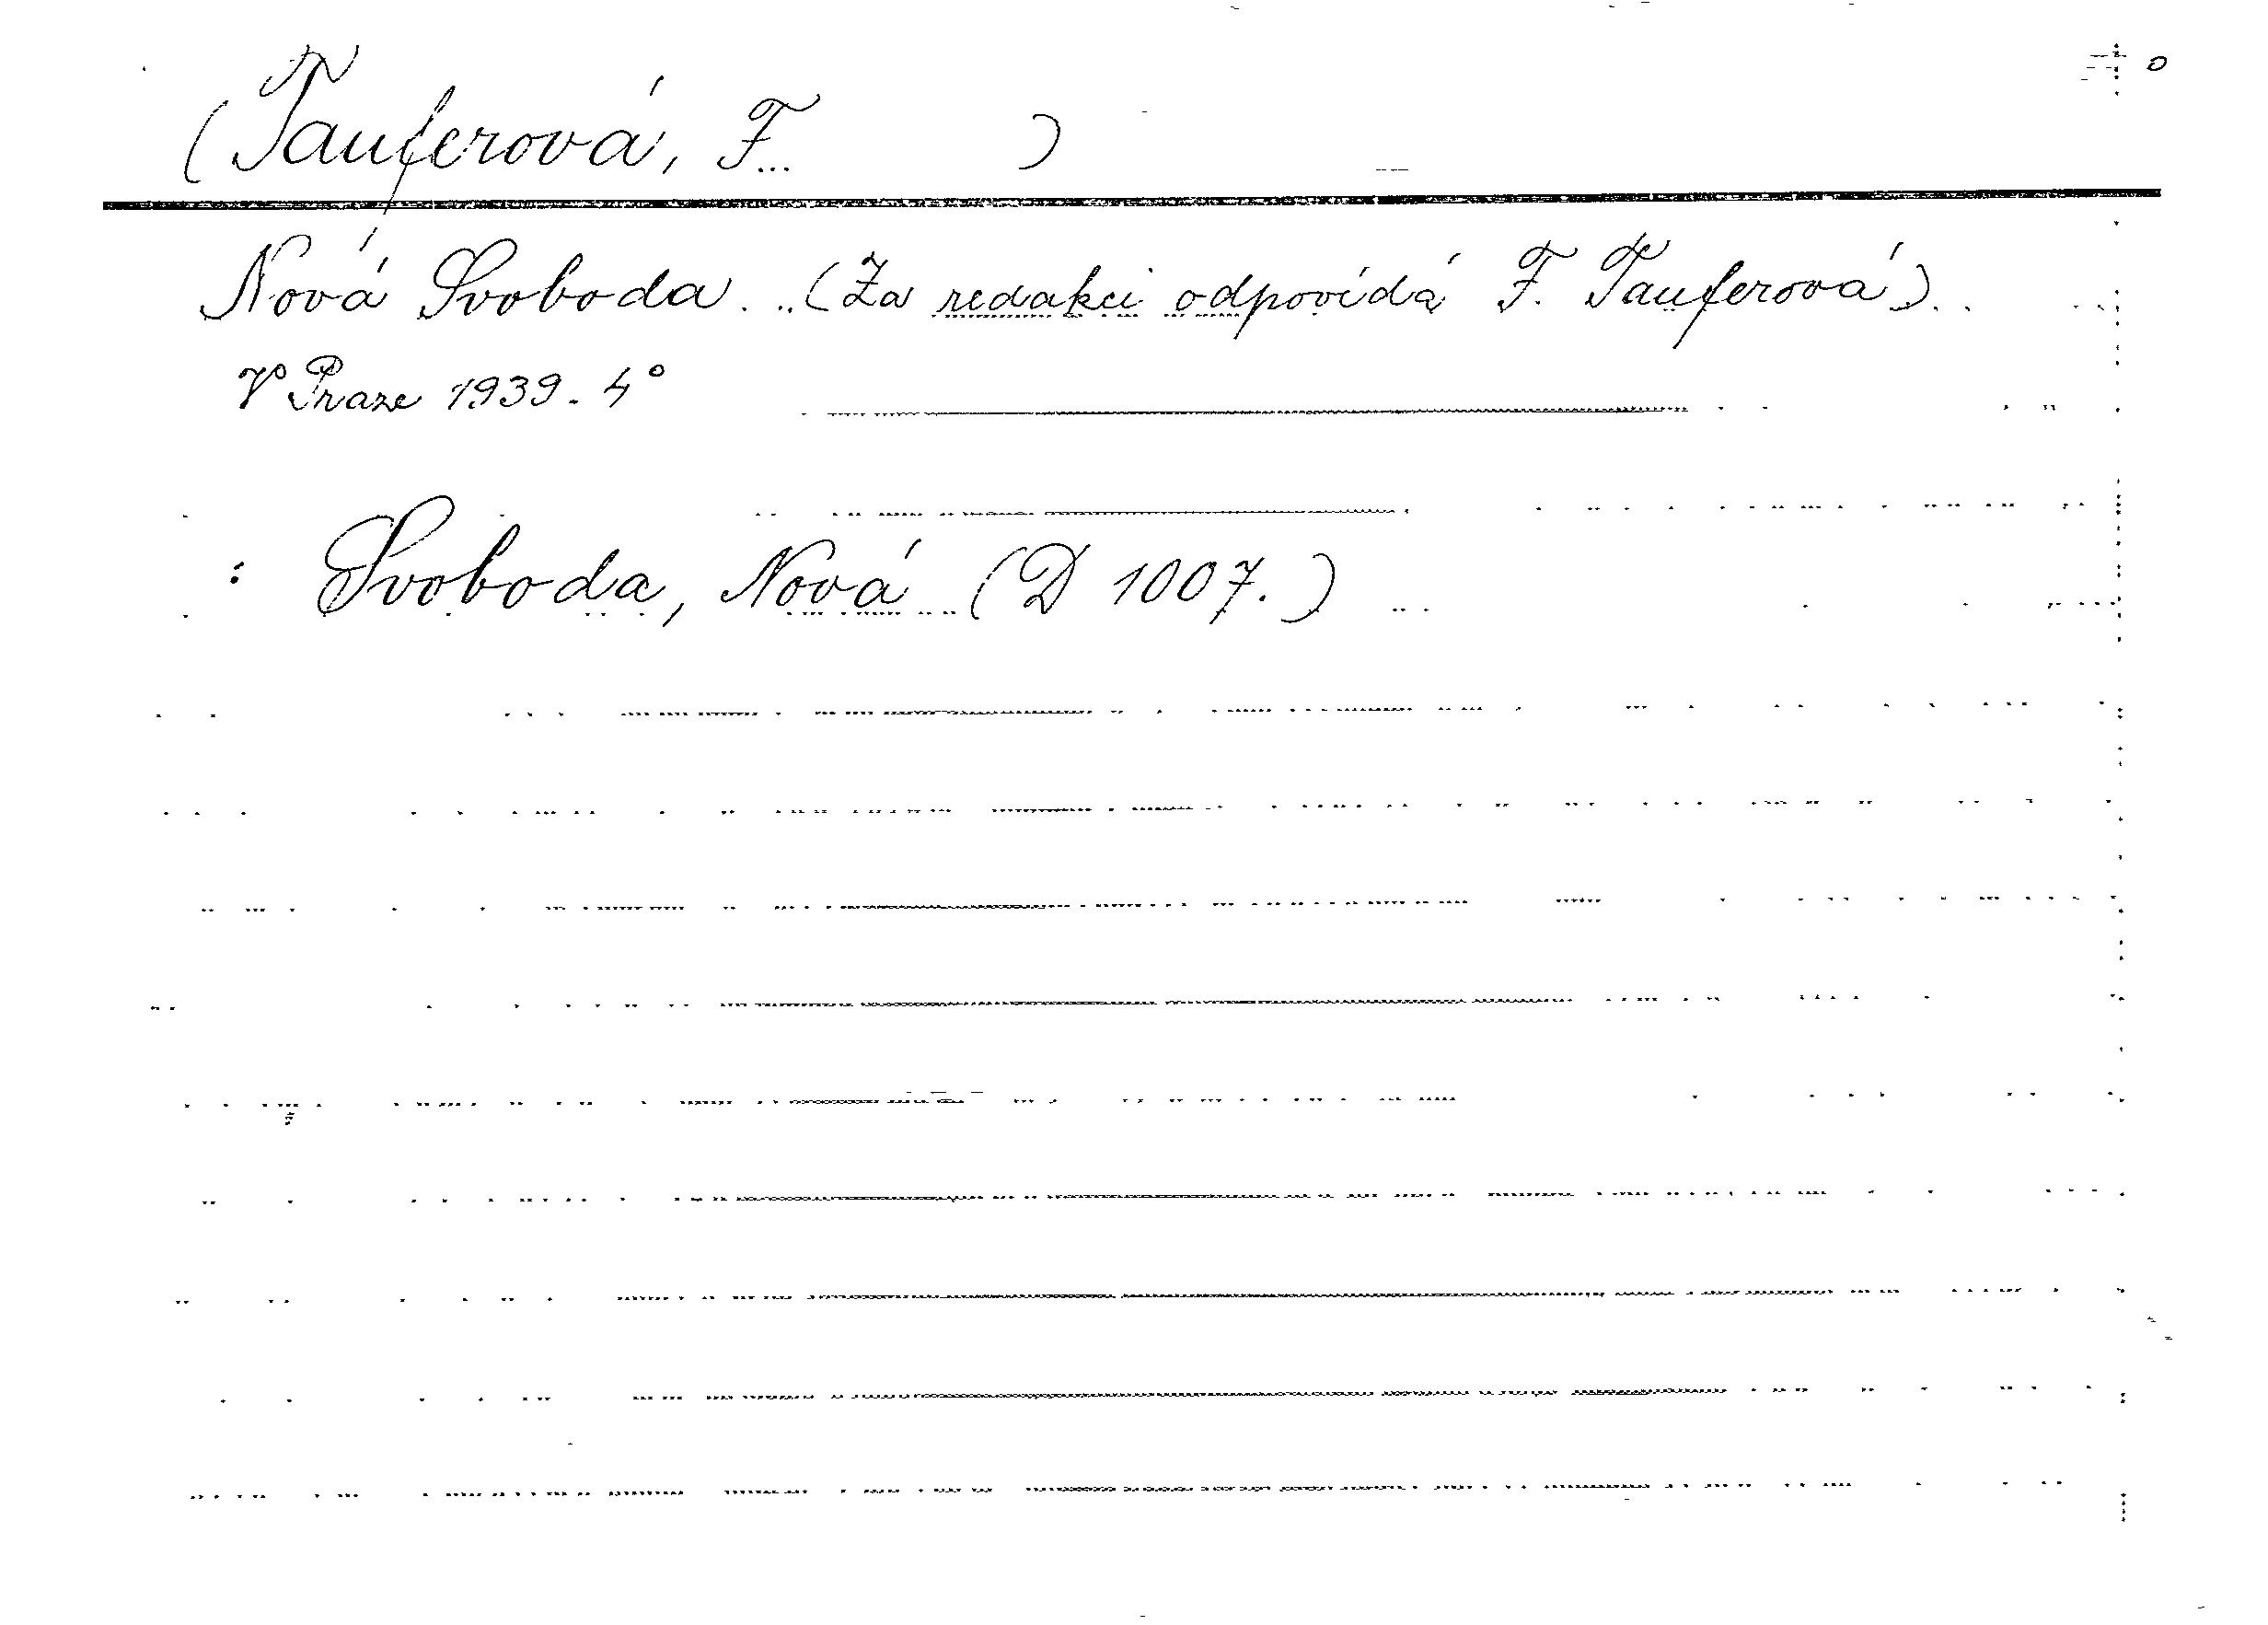 (Tauferová, F... )
Nová Svoboda. .. (Za redakci odpovídá F. Tauferová)..
V Praze 1939. 4°
: Svoboda, Nová (D 1007.)